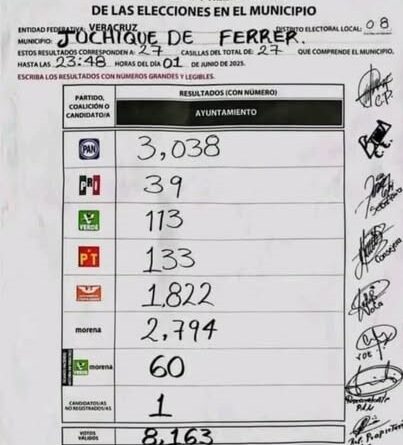 DE LAS ELECCIONES EN EL MUNICIPIO
ENTIDAD FEDERATIVA: VERACRUZ DISTRITO ELECTORAL LOCAL: 08
MUNICIPIO: JUCHIQUE DE FERRER.
ESTOS RESULTADOS CORRESPONDEN A: 27 CASILLAS DEL TOTAL DE: 27 QUE COMPRENDE EL MUNICIPIO,
HASTA LAS 23:48 HORAS DEL DÍA 01 DE JUNIO DE 2025.
ESCRIBA LOS RESULTADOS CON NÚMEROS GRANDES Y LEGIBLES.
PARTIDO, COALICIÓN O CANDIDATO/A
RESULTADOS (CON NÚMERO)
AYUNTAMIENTO
PAN 3,038
PRI 39
VERDE 113
PT 133
1,822
morena 2,794
VERDE morena 60
CANDIDATOS/AS NO REGISTRADOS/AS 1
VOTOS VÁLIDOS 8,163